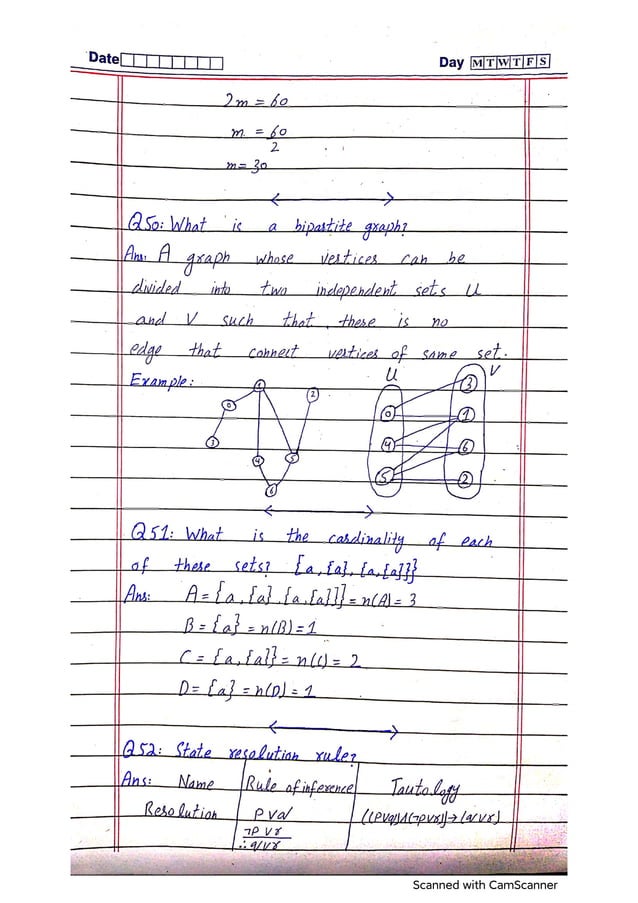 Date
Day M T W T F S
2m = 60
m = 60
2
m = 30
Q50: What is a bipartite graph?
Ans. A graph whose vertices can be
divided into two independent sets U
and V such that, there is no
edge that connect vertices of same set.
Example:
1
0
2
3
4
5
6
U
V
0
4
5
3
1
6
2
Q51: What is the cardinality of each
of these sets? {a, {a}, {a, {a}}}
Ans: A = {a, {a}, {a, {a}]} = n(A) = 3
B = {a} = n(B) = 1
C = {a, {a}} = n(C) = 2
D = {a} = n(D) = 1
Q52: State resolution rule?
Ans: Name Rule of inference Tautology
Resolution p ∨ q ((p∨q)∧(¬p∨r)) → (q∨r)
¬p ∨ r
∴ q ∨ r
Scanned with CamScanner